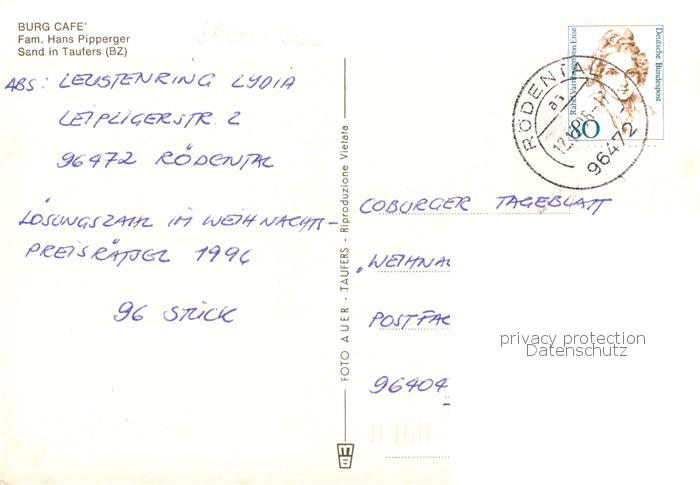 BURG CAFE'
Fam. Hans Pipperger
Sand in Taufers (BZ)
ABS: LEUSTENRING LYDIA
LEIPLIGERSTR. 2
96472 RÖDENTAL
LÖSUNGSZAHL IM WEIHNACHTS-
PREISRÄTSEL 1996
96 STÜCK
FOTO AUER - TAUFERS - Riproduzione Vietata
Deutsche Bundespost
80
RÖDENTAL
96472
COBURGER TAGEBLATT
"WEIHNA
POSTFAC
96404
privacy protection
Datenschutz